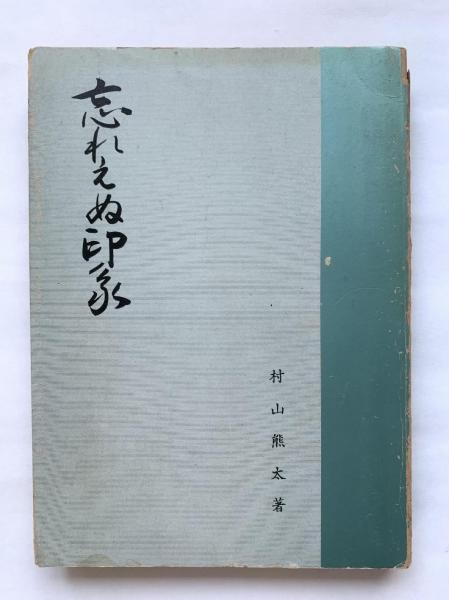 忘れえぬ印象
村山熊太著